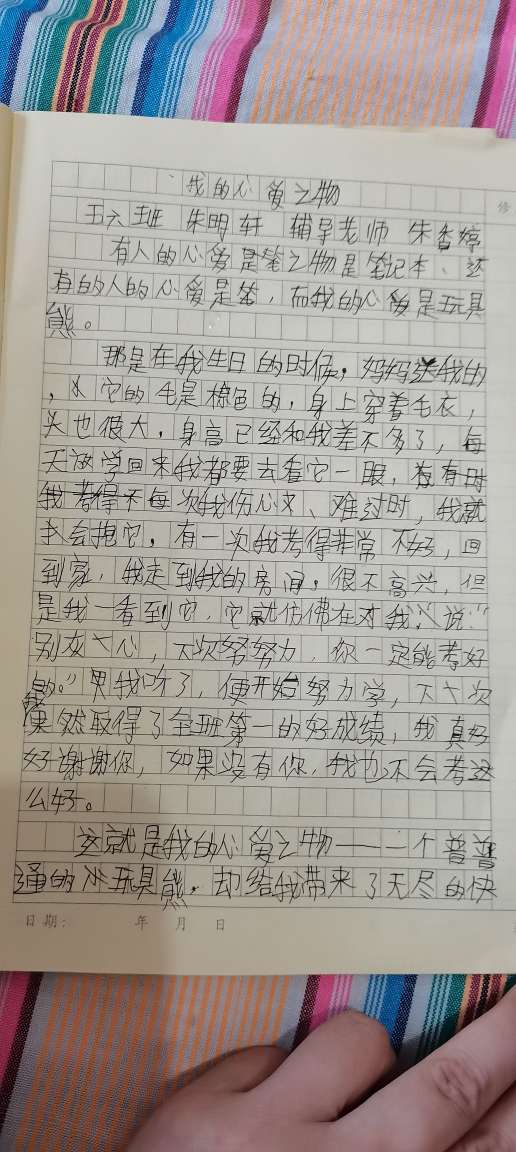 我的心爱之物
五六班 朱明轩 辅导老师 朱香婷
有人的心爱是笔之物是笔记本、还
有的人的心爱是笔，而我的心爱是玩具
熊。
那是在我生日的时候，妈妈送我的
，它的毛是棕色的，身上穿着毛衣，
头也很大，身高已经和我差不多了，每
天放学回来我都要去看它一眼，有时
我考得不每次我伤心、难过时，我就
会抱它，有一次我考得非常不好，回
到家，我走到我的房间，很不高兴，但
是我一看到它，它就仿佛在对我说“
别灰心，下次努努力，你一定能考好
的。”果我听了，便开始努力学，下次
果然取得了全班第一的好成绩，我真好
好谢谢你，如果没有你，我也不会考这
么好。
这就是我的心爱之物——一个普普
通的玩具熊，却给我带来了无尽的快
日期： 年 月 日
修